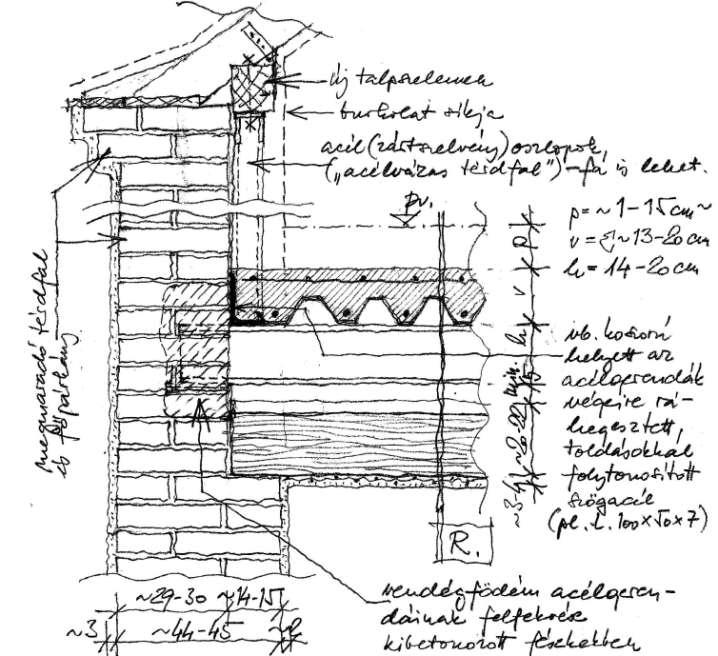 új talpszelemen
burkolat síkja
acél (zártszelvény) oszlopok,
("acélvázas térdfal") – fa is lehet.
pv.
p = ~1–15 cm ~
v = ~13–20 cm
h = 14–20 cm
p
v
h
~20-22
15
~3-4
megmaradó térdfal
és főpárkány
vb. koszorú
helyett az
acélgerendák
végeire rá-
hegesztett,
toldásokkal
folytonosított
szögacél
(pl. L. 100×50×7)
R.
~29-30
~14-15
~3
~44-45
~2
vendégfödém acélgeren-
dáinak felfekvése
kibetonozott fészkekben